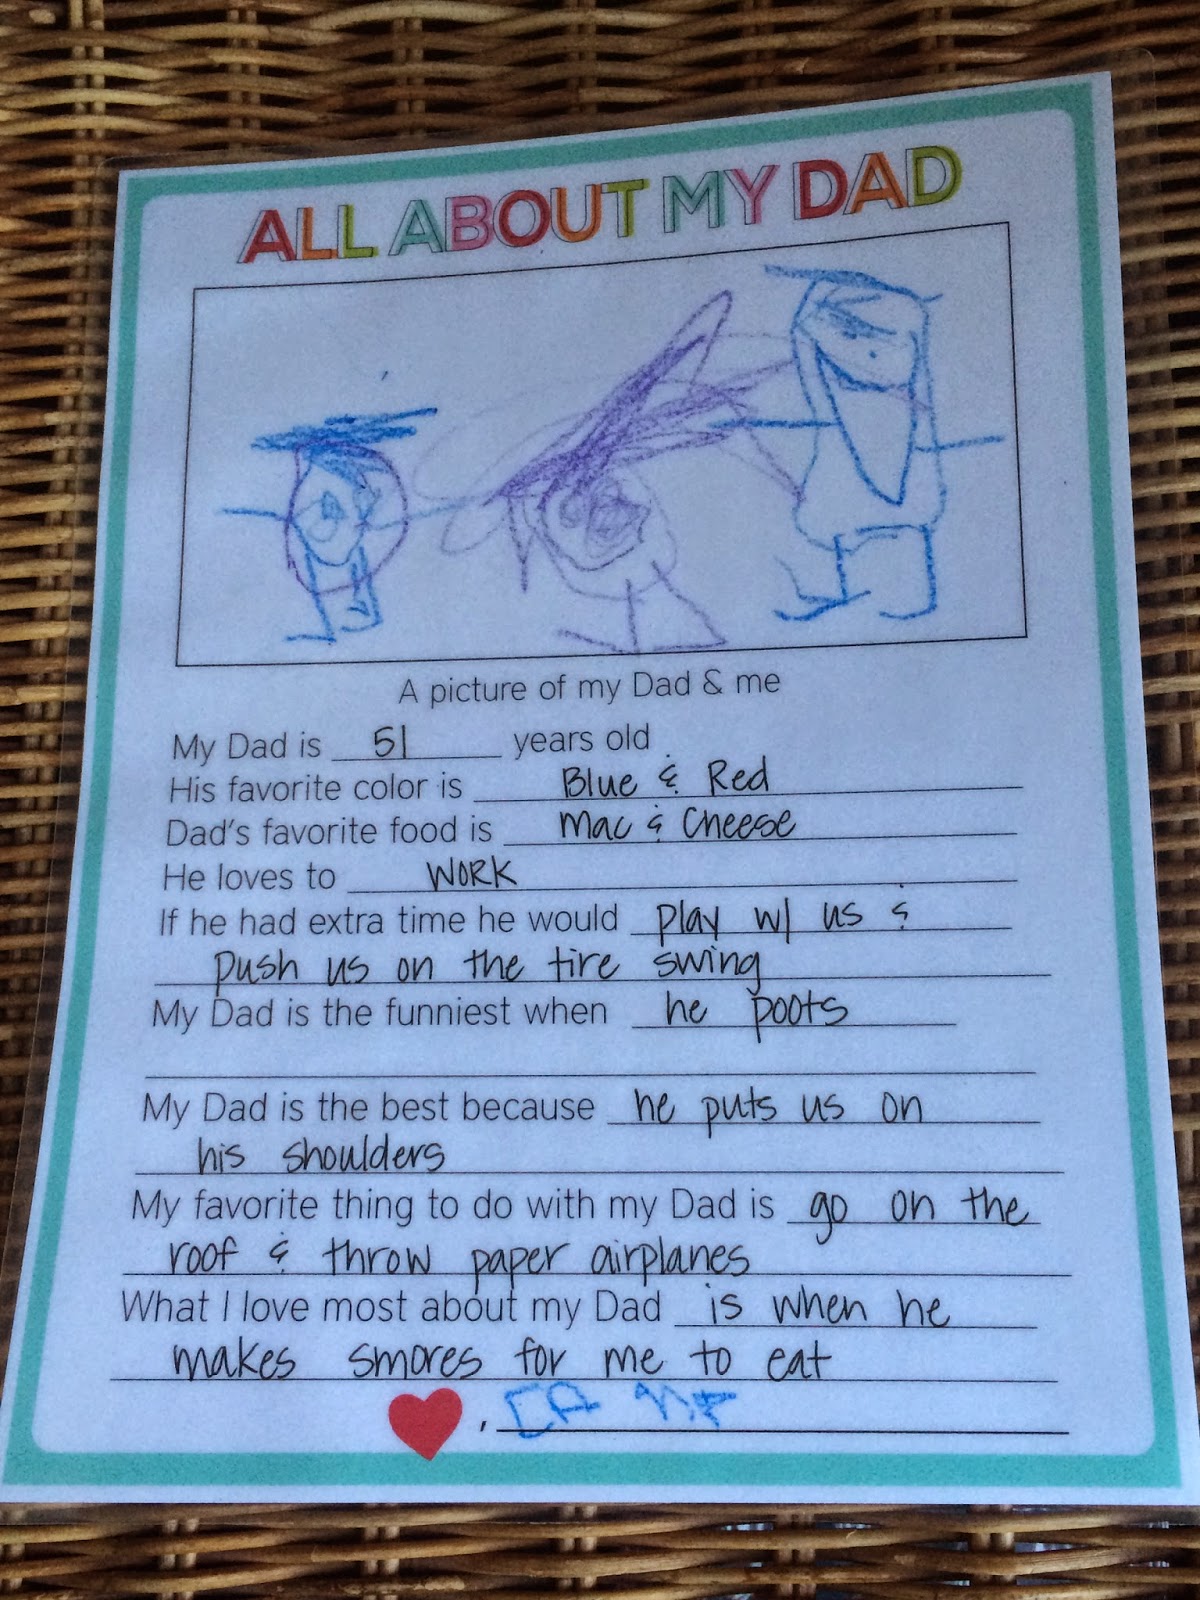 ALL ABOUT MY DAD
A picture of my Dad & me
My Dad is 51 years old
His favorite color is Blue & Red
Dad's favorite food is Mac & Cheese
He loves to WORK
If he had extra time he would play w/ us &
push us on the tire swing
My Dad is the funniest when he poots
My Dad is the best because he puts us on
his shoulders
My favorite thing to do with my Dad is go on the
roof & throw paper airplanes
What I love most about my Dad is when he
makes smores for me to eat
,